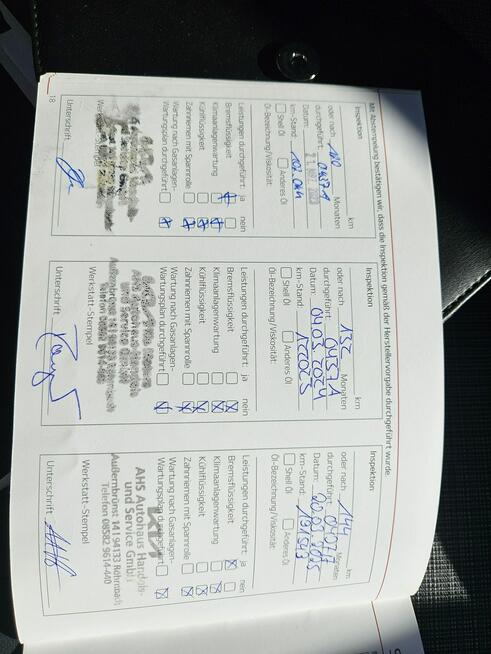 Mit Abstempelung bestätigen wir, dass die Inspektion gemäß der Herstellervorgabe durchgeführt wurde.
Inspektion
km
oder nach 120 Monaten
durchgeführt: 04371
Datum:
km-Stand:
Shell Öl Anderes Öl
Öl-Bezeichnung/Viskosität:
Leistungen durchgeführt: ja nein
Bremsflüssigkeit
Klimaanlagenwartung
Kühlflüssigkeit
Zahnriemen mit Spannrolle
Wartung nach Gasanlagen-
Wartungsplan durchgeführt
Werkstatt-Stempel
Unterschrift
18
Inspektion
km
oder nach 132 Monaten
durchgeführt: 04371
Datum: 04.03.2024
km-Stand:
Shell Öl Anderes Öl
Öl-Bezeichnung/Viskosität:
Leistungen durchgeführt: ja nein
Bremsflüssigkeit
Klimaanlagenwartung
Kühlflüssigkeit
Zahnriemen mit Spannrolle
Wartung nach Gasanlagen-
Wartungsplan durchgeführt
AHS Autohaus Handels-
und Service GmbH
Außernbrünst 14 | 94133 Röhrnbach
Telefon 08582 9614-440
Werkstatt-Stempel
Unterschrift
Inspektion
km
oder nach 144 Monaten
durchgeführt:
Datum:
km-Stand:
Shell Öl Anderes Öl
Öl-Bezeichnung/Viskosität:
Leistungen durchgeführt: ja nein
Bremsflüssigkeit
Klimaanlagenwartung
Kühlflüssigkeit
Zahnriemen mit Spannrolle
Wartung nach Gasanlagen-
Wartungsplan durchgeführt
KIA
AHS Autohaus Handels-
und Service GmbH
Außernbrünst 14 | 94133 Röhrnbach
Telefon 08582 9614-440
Werkstatt-Stempel
Unterschrift